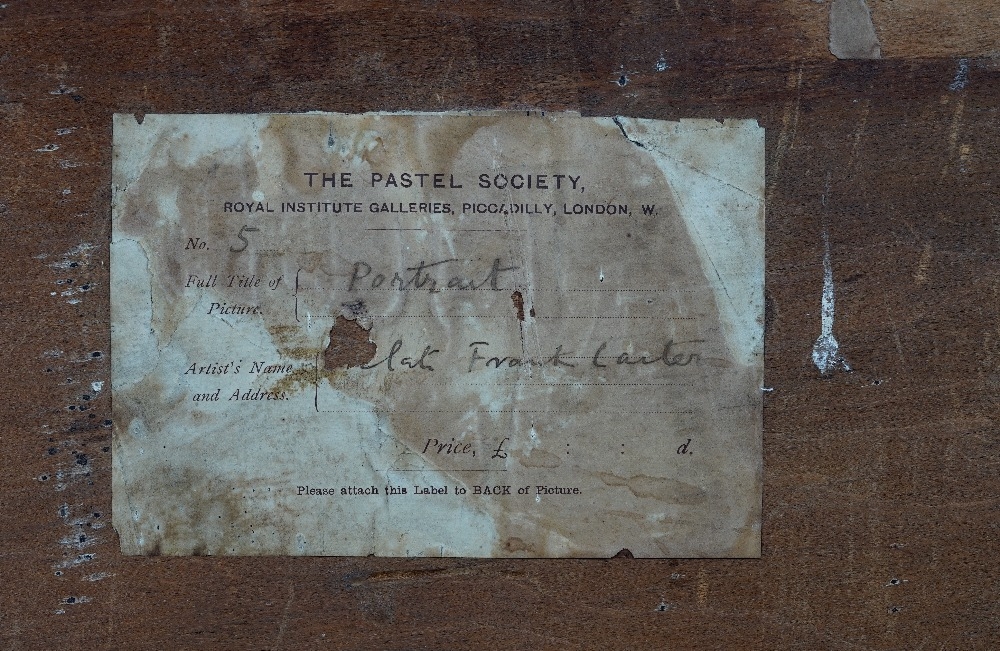 THE PASTEL SOCIETY,
ROYAL INSTITUTE GALLERIES, PICCADILLY, LONDON, W.
No. 5
Full Title of Picture. Portrait
Artist's Name and Address. late Frank Carter
Price, £ : : d.
Please attach this Label to BACK of Picture.